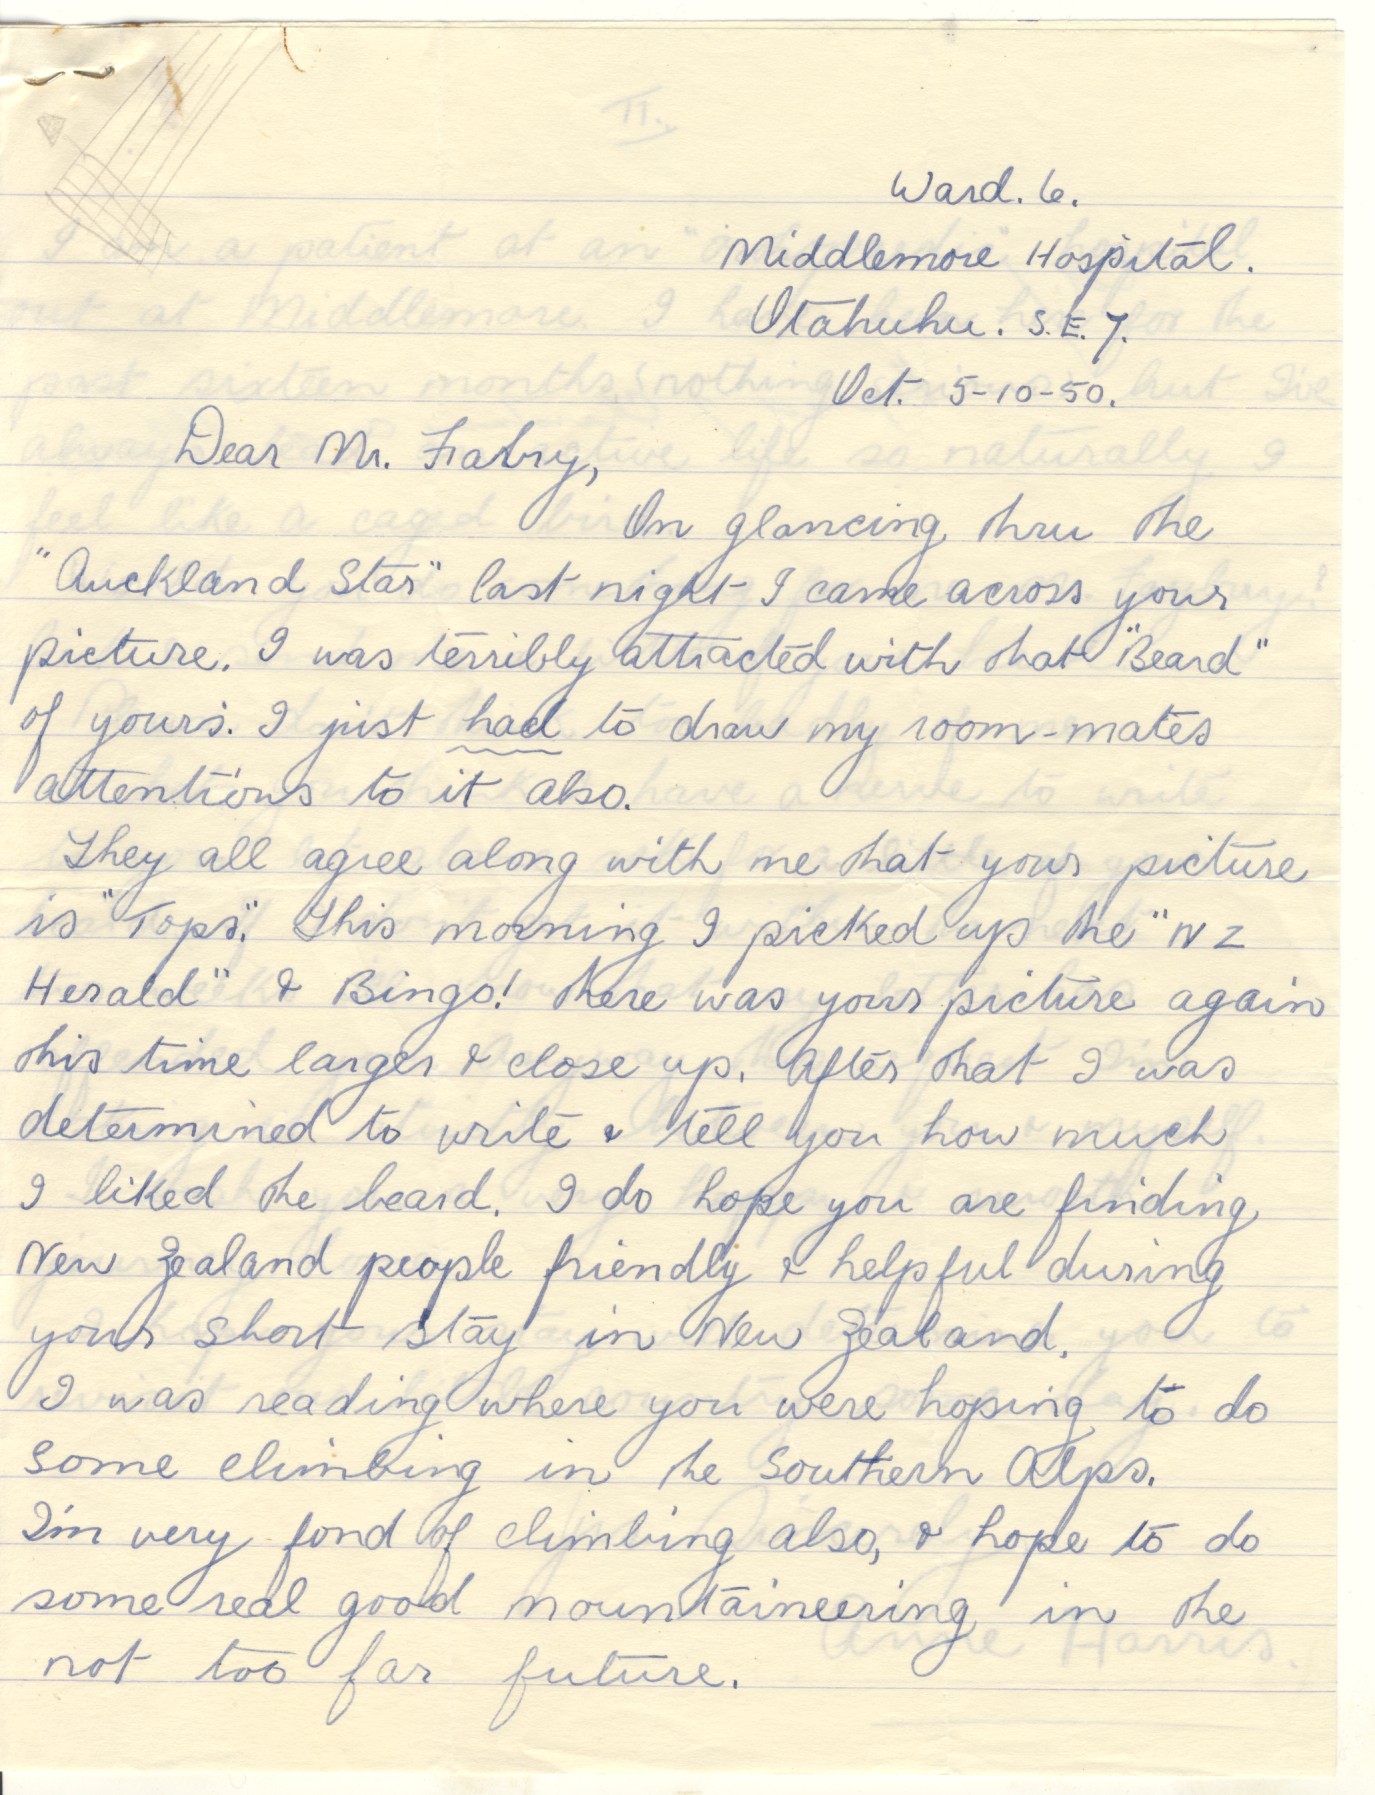 Ward. 6.
Middlemore Hospital.
Otahuhu. S.E.7.
Oct. 5-10-50.
Dear Mr. Fabry,
On glancing thru the
"Auckland Star" last night I came across your
picture. I was terribly attracted with that "Beard"
of yours. I just had to draw my room-mates
attentions to it also.
They all agree along with me that your picture
is "Tops". This morning I picked up the "NZ
Herald" & Bingo! there was your picture again
this time larger & close up. After that I was
determined to write & tell you how much
I liked the beard. I do hope you are finding
New Zealand people friendly & helpful during
your short stay in New Zealand.
I was reading where you were hoping to do
some climbing in the Southern Alps.
I'm very fond of climbing also, & hope to do
some real good mountaineering in the
not too far future.